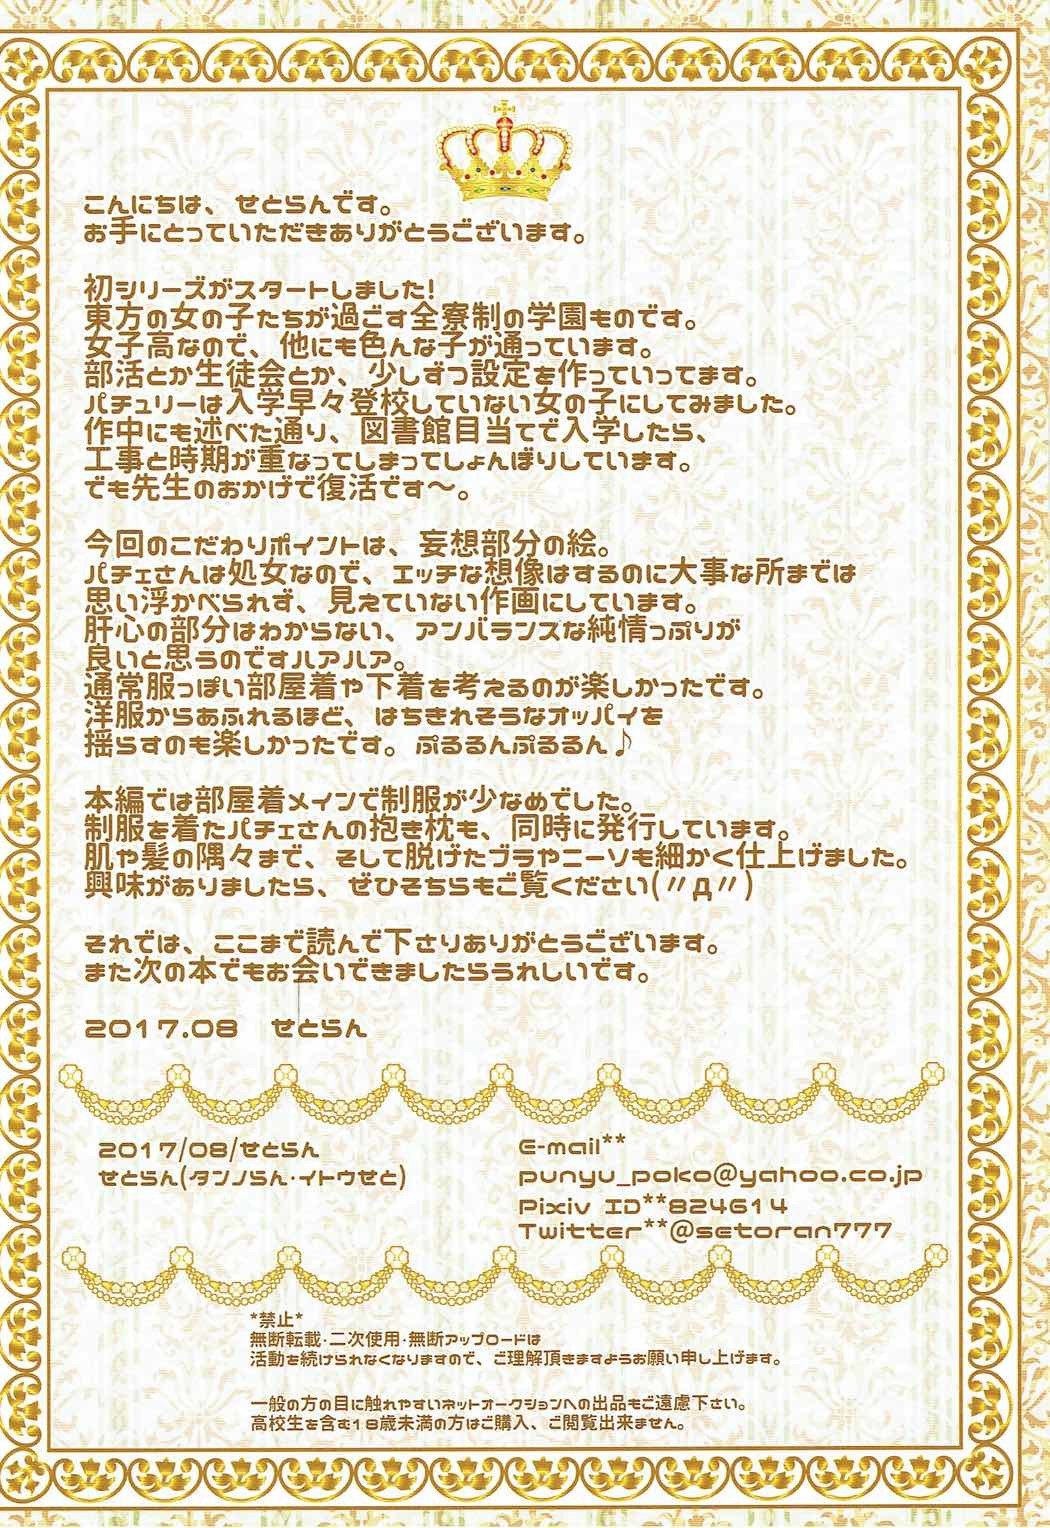 こんにちは、せとらんです。
お手にとっていただきありがとうございます。
初シリーズがスタートしました!
東方の女の子たちが過ごす全寮制の学園ものです。
女子高なので、他にも色んな子が通っています。
部活とか生徒会とか、少しずつ設定を作っていってます。
パチュリーは入学早々登校していない女の子にしてみました。
作中にも述べた通り、図書館目当てで入学したら、
工事と時期が重なってしまってしょんぼりしています。
でも先生のおかげで復活です〜。
今回のこだわりポイントは、妄想部分の絵。
パチェさんは処女なので、エッチな想像はするのに大事な所までは
思い浮かべられず、見えていない作画にしています。
肝心の部分はわからない、アンバランスな純情っぷりが
良いと思うのですハアハア。
通常服っぽい部屋着や下着を考えるのが楽しかったです。
洋服からあふれるほど、はちきれそうなオッパイを
揺らすのも楽しかったです。ぷるるんぷるるん♪
本編では部屋着メインで制服が少なめでした。
制服を着たパチェさんの抱き枕も、同時に発行しています。
肌や髪の隅々まで、そして脱げたブラやニーソも細かく仕上げました。
興味がありましたら、ぜひそちらもご覧ください(〃д〃)
それでは、ここまで読んで下さりありがとうございます。
また次の本でもお会いできましたらうれしいです。
2017.08 せとらん
2017/08/せとらん
せとらん(タンノらん・イトウせと)
E-mail**
punyu_poko@yahoo.co.jp
Pixiv ID**824614
Twitter**@setoran777
*禁止*
無断転載・二次使用・無断アップロードは
活動を続けられなくなりますので、ご理解頂きますようお願い申し上げます。
一般の方の目に触れやすいネットオークションへの出品もご遠慮下さい。
高校生を含む18歳未満の方はご購入、ご閲覧出来ません。